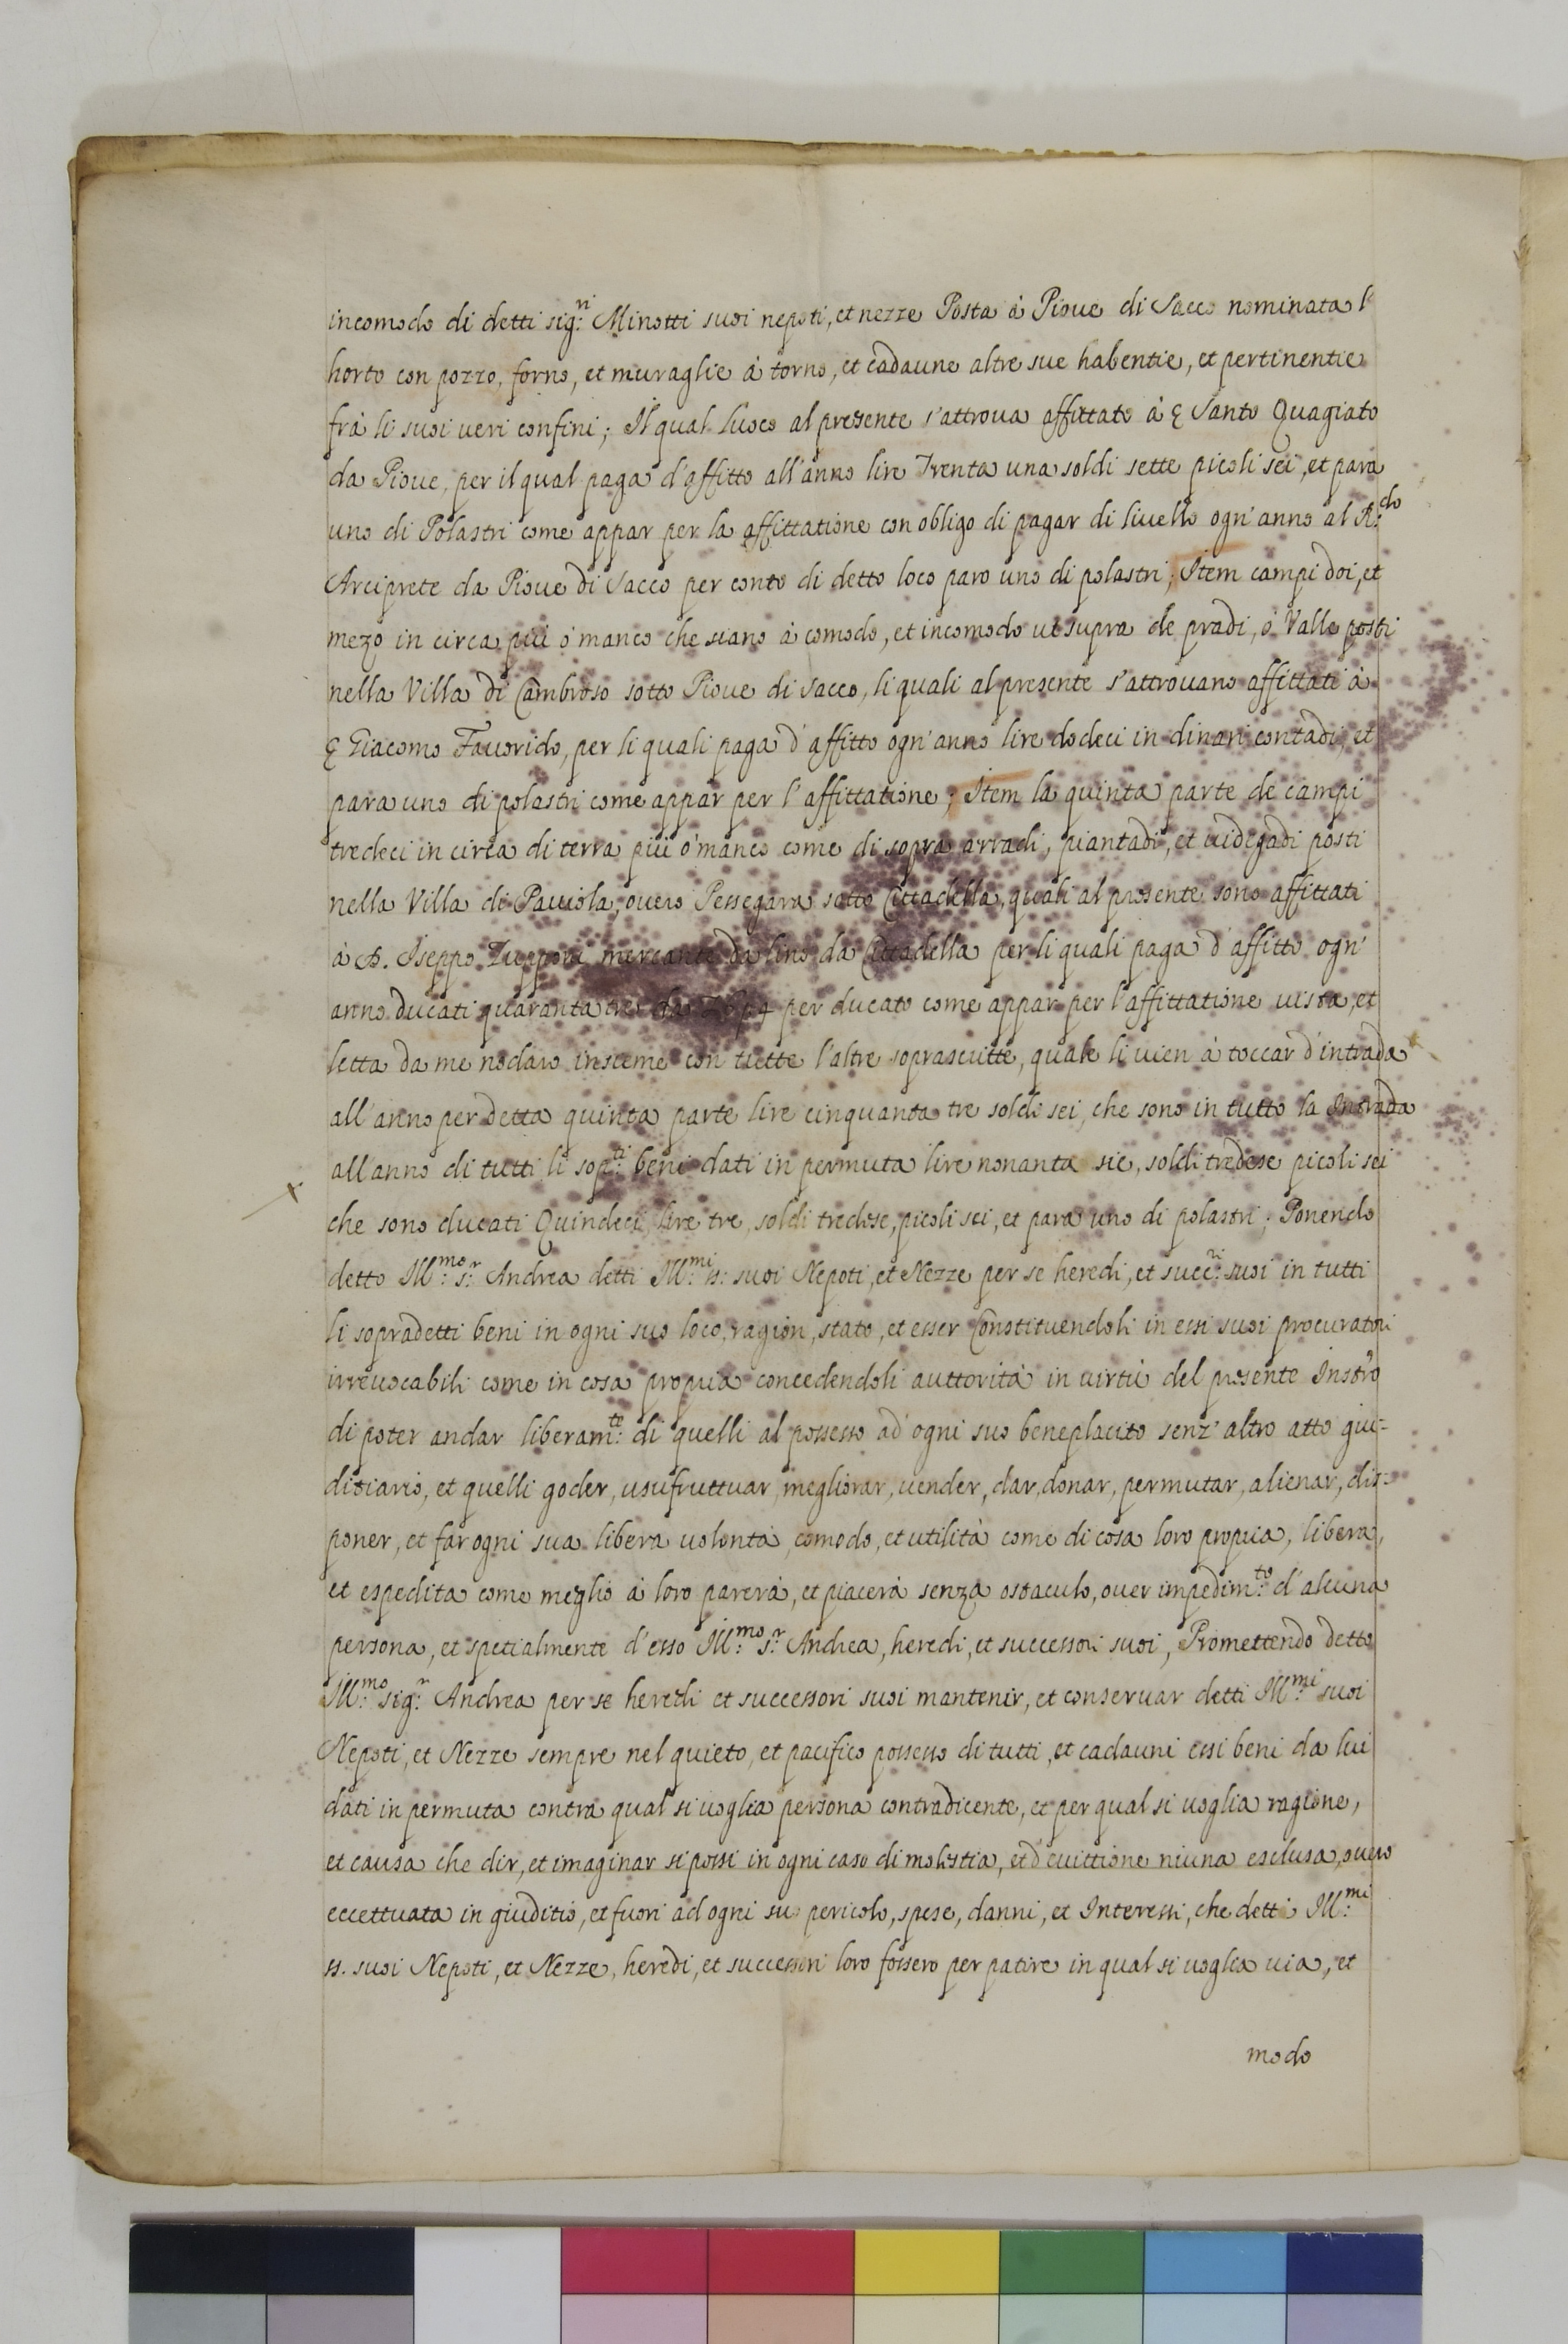 incomodo di detti sig:ri Minotti suoi nepoti, et nezze Posta à Pioue di Sacco nominata l'
horto con pozzo, forno, et muraglie à torno, et cadaune altre sue habentie, et pertinentie
frà li suoi ueri confini; Il qual luoco al presente s'attroua affittato à Santo Quagiato
da Pioue, per il qual paga d'affitto all'anno lire Trenta una soldi sette picoli sei, et para
uno di Polastri come appar per la affittatione con obligo di pagar di liuello ogn'anno al R:do
Arciprete da Pioue di Sacco per conto di detto loco paro uno di polastri; Item campi doi, et
mezo in circa più ò manco che siano à comodo, et incomodo ut supra de pradi, ò Valle posti
nella Villa di Cambroso sotto Pioue di Sacco, li quali al presente s'attrouano affittati à
Giacomo Fauorido, per li quali paga d'affitto ogn'anno lire dodeci in dinari contadi, et
para uno di polastri come appar per l'affittatione; Item la quinta parte de campi
tredeci in circa di terra più ò manco come di sopra arradi, piantadi, et uidegadi posti
nella Villa di Pauiola, ouero Pessegara sotto Cittadella, quali al presente sono affittati
à Iseppo mercante da lino da Cittadella per li quali paga d'affitto ogn'
anno ducati quaranta tre da per ducato come appar per l'affittatione uista, et
letta da me nodaro insieme con tutte l'altre soprascritte, quale li uien à toccar d'intrada
all'anno per detta quinta parte lire cinquanta tre soldi sei, che sono in tutto la Intrada
all'anno di tutti li sop:ti beni dati in permuta lire nonanta sie, soldi tredese picoli sei
che sono ducati Quindeci, lire tre, soldi tredese, picoli sei, et para uno di polastri; Ponendo
detto Ill:mo s:r Andrea detti Ill:mi ss: suoi Nepoti, et Nezze per se heredi, et succ:ri suoi in tutti
li sopradetti beni in ogni suo loco, ragion, stato, et esser Constituendoli in essi suoi procuratori
irreuocabili come in cosa propria concedendoli auttorità in uirtù del presente Instro
di poter andar liberam:te di quelli al possesso ad ogni suo beneplacito senz'altro atto giu-
ditiario, et quelli goder, usufruttuar, megliorar, uender, dar, donar, permutar, alienar, dis-
poner, et far ogni sua libera uolontà, comodo, et utilità come di cosa loro propria, libera,
et espedita come meglio à loro parerà, et piacerà senza ostaculo, ouer impedim:to d'alcuna
persona, et specialmente d'esso Ill:mo s:r Andrea, heredi, et successori suoi, Promettendo detto
Ill:mo sig:r Andrea per se heredi et successori suoi mantenir, et conseruar detti Ill:mi suoi
Nepoti, et Nezze sempre nel quieto, et pacifico possesso di tutti, et cadauni essi beni da lui
dati in permuta contra qual si uoglia persona contradicente, et per qual si uoglia ragione,
et causa che dir, et imaginar si possi in ogni caso di molestia, et d'euittione niuna esclusa, ouero
eccettuata in giuditio, et fuori ad ogni suo pericolo, spese, danni, et Interessi, che detti Ill:mi
ss. suoi Nepoti, et Nezze, heredi, et successori loro fossero per patire in qual si uoglia uia, et
modo